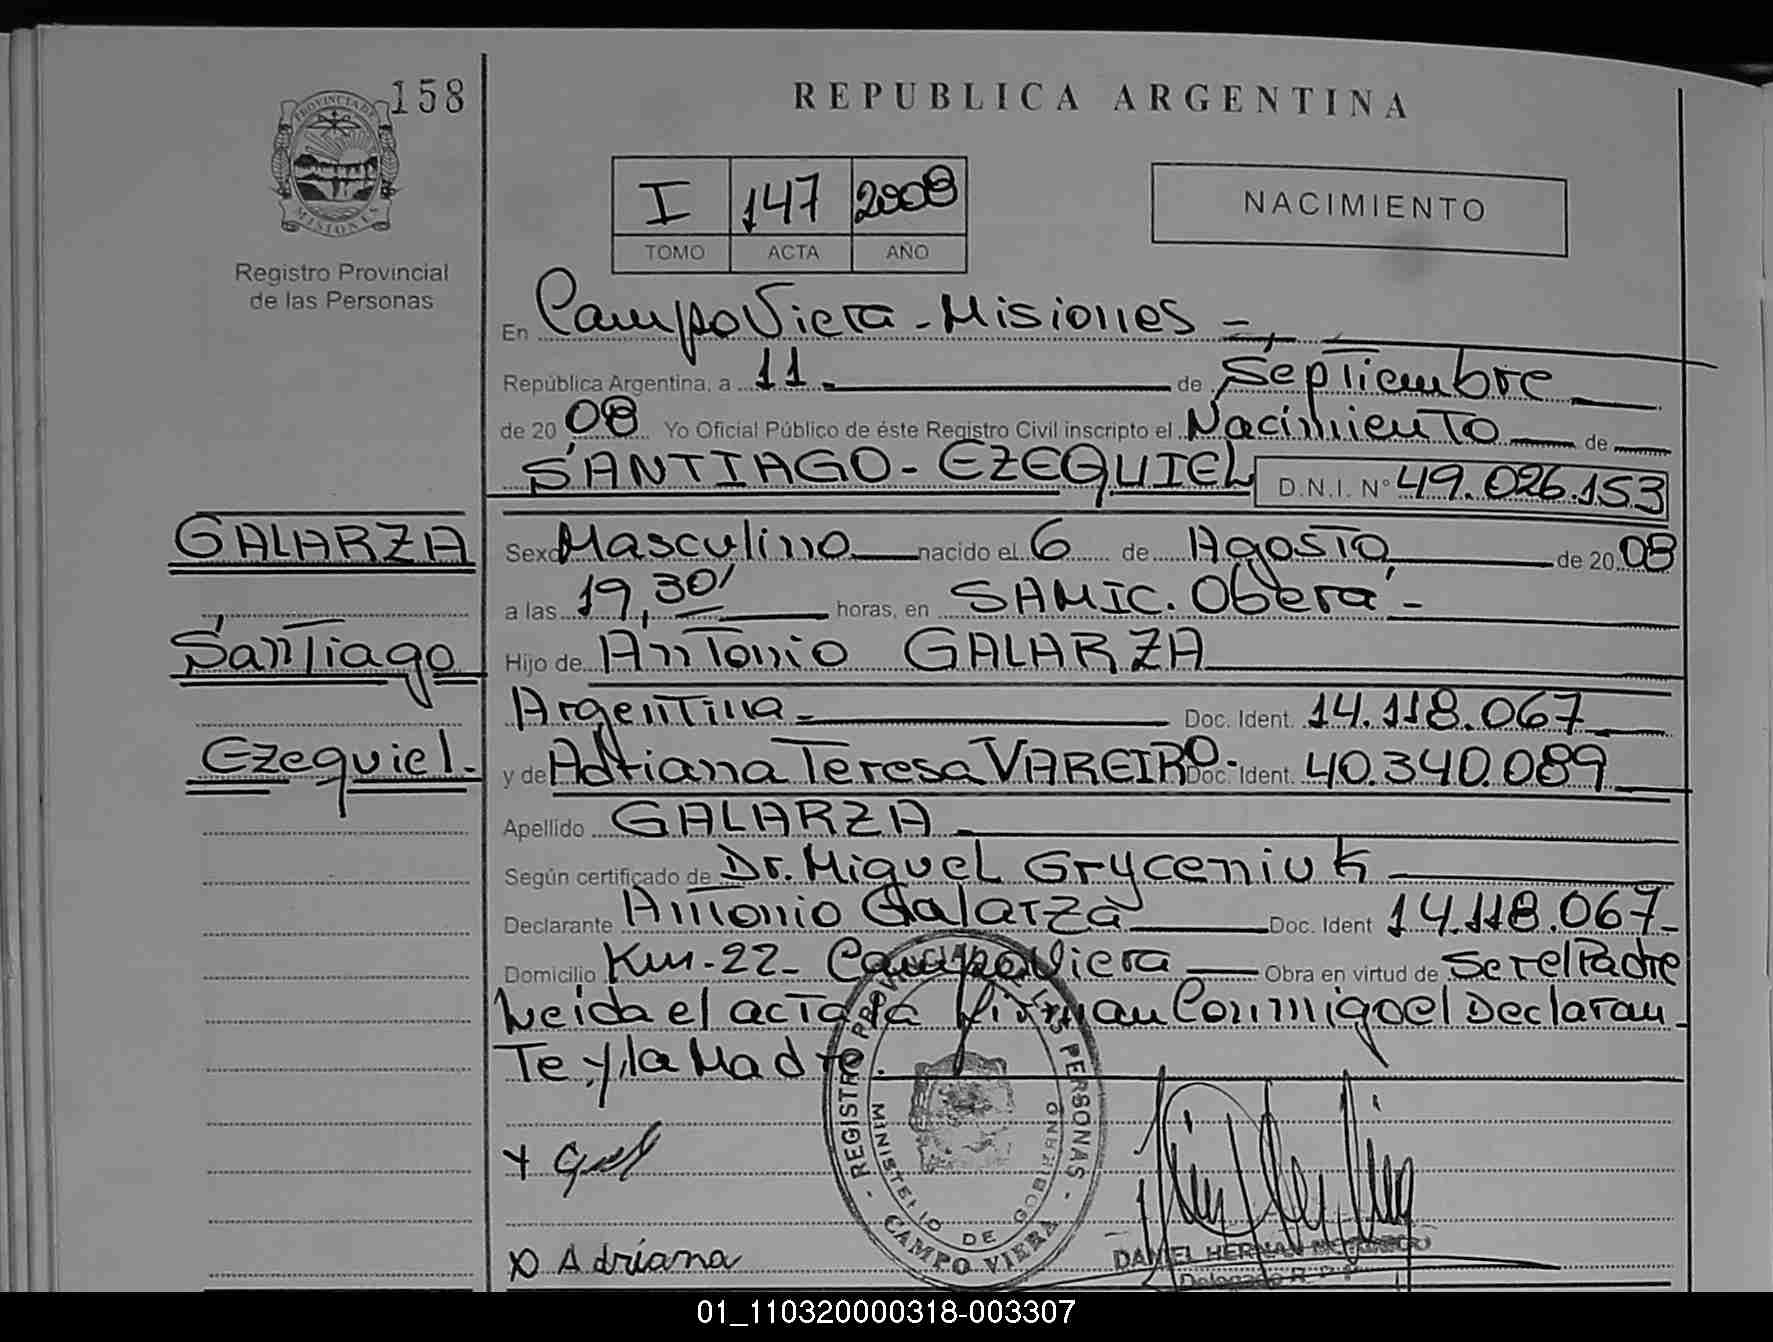 158
PROVINCIA DE
MISIONES
Registro Provincial
de las Personas
REPUBLICA ARGENTINA
I 147 2008
TOMO ACTA AÑO
NACIMIENTO
En Campo Viera - Misiones -
República Argentina, a 11 de Septiembre
de 20 08 Yo Oficial Público de éste Registro Civil inscripto el Nacimiento de
SANTIAGO - EZEQUIEL D.N.I. N° 49.026.153
GALARZA
Santiago
Ezequiel.
Sexo Masculino nacido el 6 de Agosto de 20 08
a las 19,30' horas, en SAMIC. Oberá -
Hijo de Antonio GALARZA
Argentina - Doc. Ident. 14.118.067
y de Adriana Teresa VAREIRO - Doc. Ident. 40.340.089
Apellido GALARZA -
Según certificado de Dr. Miguel Gryceniuk
Declarante Antonio Galarza Doc. Ident 14.118.067-
Domicilio Km-22- Campo Viera Obra en virtud de Ser el Padre
Leida el acta la firman Conmigo el Declaran-
te y la Madre.
REGISTRO PROVINCIAL DE LAS PERSONAS
MINISTERIO DE GOBIERNO
- CAMPO VIERA -
x Adriana
DANIEL HERNAN
Delegado R. P. P.
01_110320000318-003307